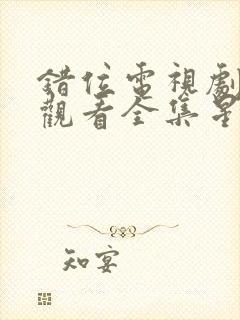 錯位電視劇
觀看全集星
知宴